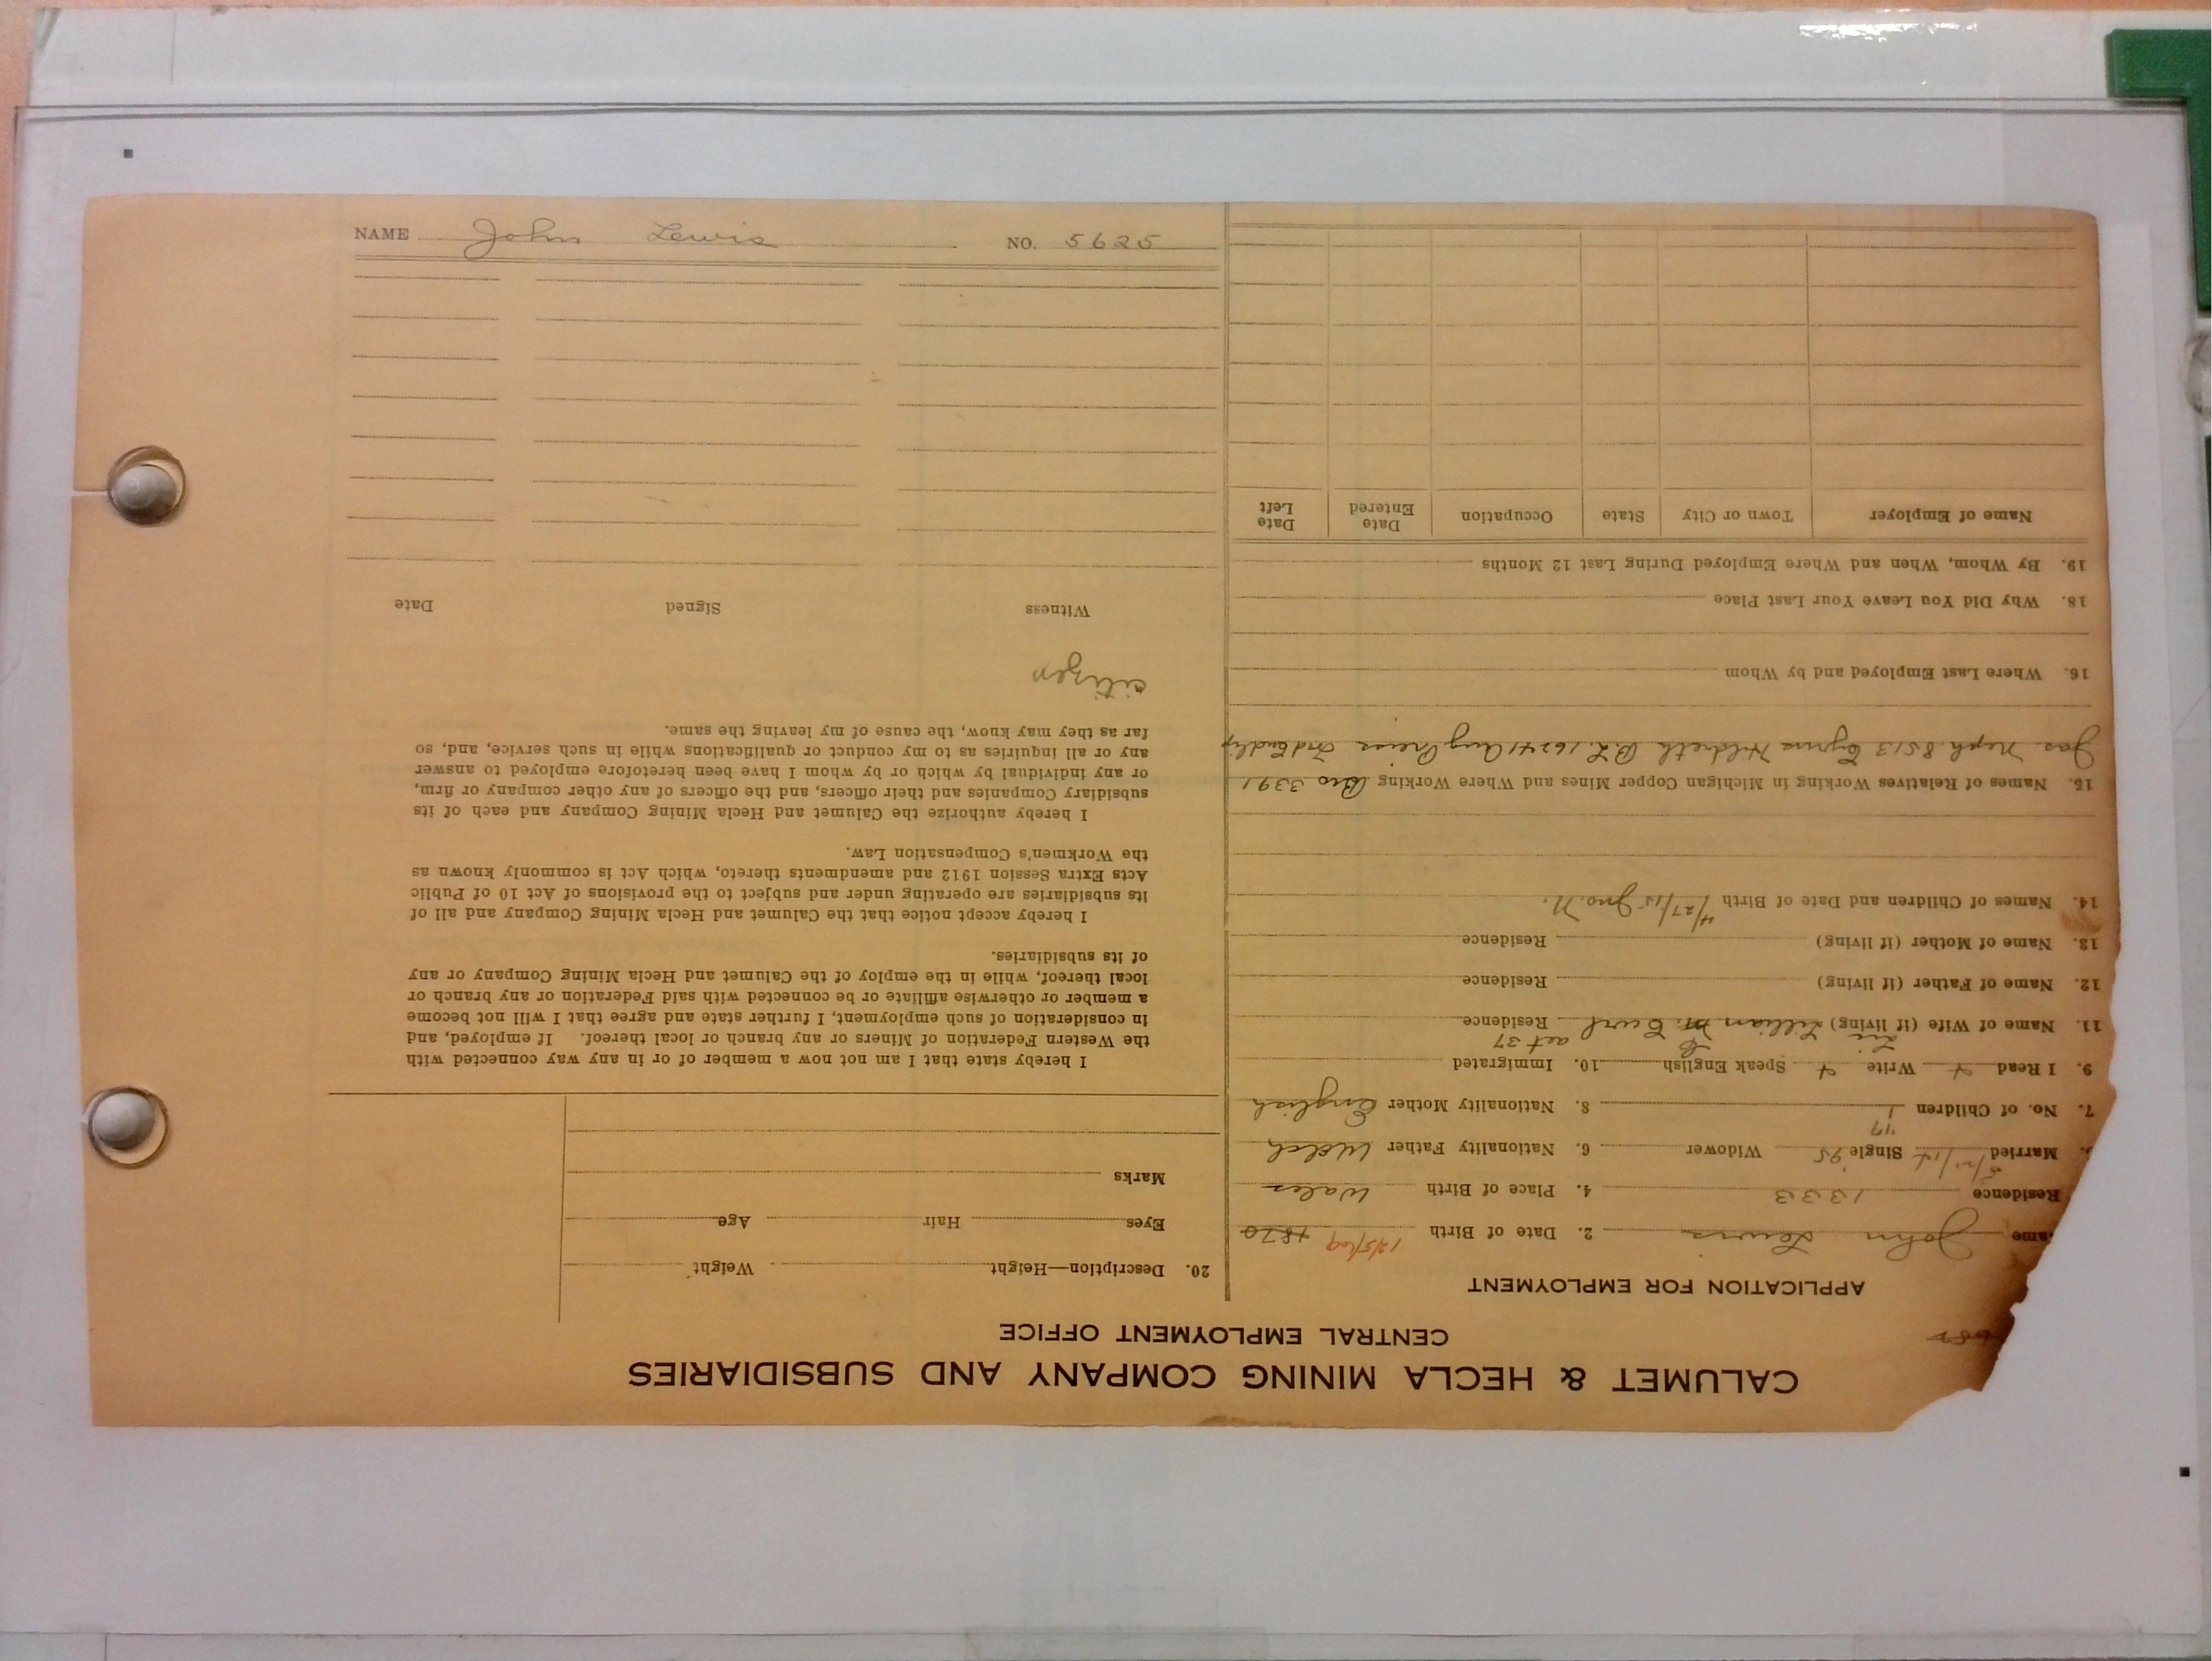 CALUMET & HECLA MINING COMPANY AND SUBSIDIARIES
CENTRAL EMPLOYMENT OFFICE
APPLICATION FOR EMPLOYMENT
ame John Lewis 2. Date of Birth 12/5/69 1870
Residence 1333 4. Place of Birth Wales
Married Single '95 Widower 6. Nationality Father Welch
'17
7. No. of Children 1 8. Nationality Mother English
9. I Read + Write + Speak English 10. Immigrated
act 37
11. Name of Wife (if living) Lillian Residence
12. Name of Father (if living) Residence
13. Name of Mother (if living) Residence
14. Names of Children and Date of Birth 4/27/15 Jno. N.
15. Names of Relatives Working in Michigan Copper Mines and Where Working Bro 3391
Jas. Neph. 8513 Hildreth 16241 Aug
16. Where Last Employed and by Whom
18. Why Did You Leave Your Last Place
19. By Whom, When and Where Employed During Last 12 Months
Name of Employer Town or City State Occupation Date Entered Date Left
20. Description—Height Weight
Eyes Hair Age
Marks
I hereby state that I am not now a member of or in any way connected with
the Western Federation of Miners or any branch or local thereof. If employed, and
in consideration of such employment, I further state and agree that I will not become
a member or otherwise affiliate or be connected with said Federation or any branch or
local thereof, while in the employ of the Calumet and Hecla Mining Company or any
of its subsidiaries.
I hereby accept notice that the Calumet and Hecla Mining Company and all of
its subsidiaries are operating under and subject to the provisions of Act 10 of Public
Acts Extra Session 1912 and amendments thereto, which Act is commonly known as
the Workmen's Compensation Law.
I hereby authorize the Calumet and Hecla Mining Company and each of its
subsidiary Companies and their officers, and the officers of any other company or firm,
or any individual by which or by whom I have been heretofore employed to answer
any or all inquiries as to my conduct or qualifications while in such service, and, so
far as they may know, the cause of my leaving the same.
citizen
Witness Signed Date
NAME John Lewis NO. 5625